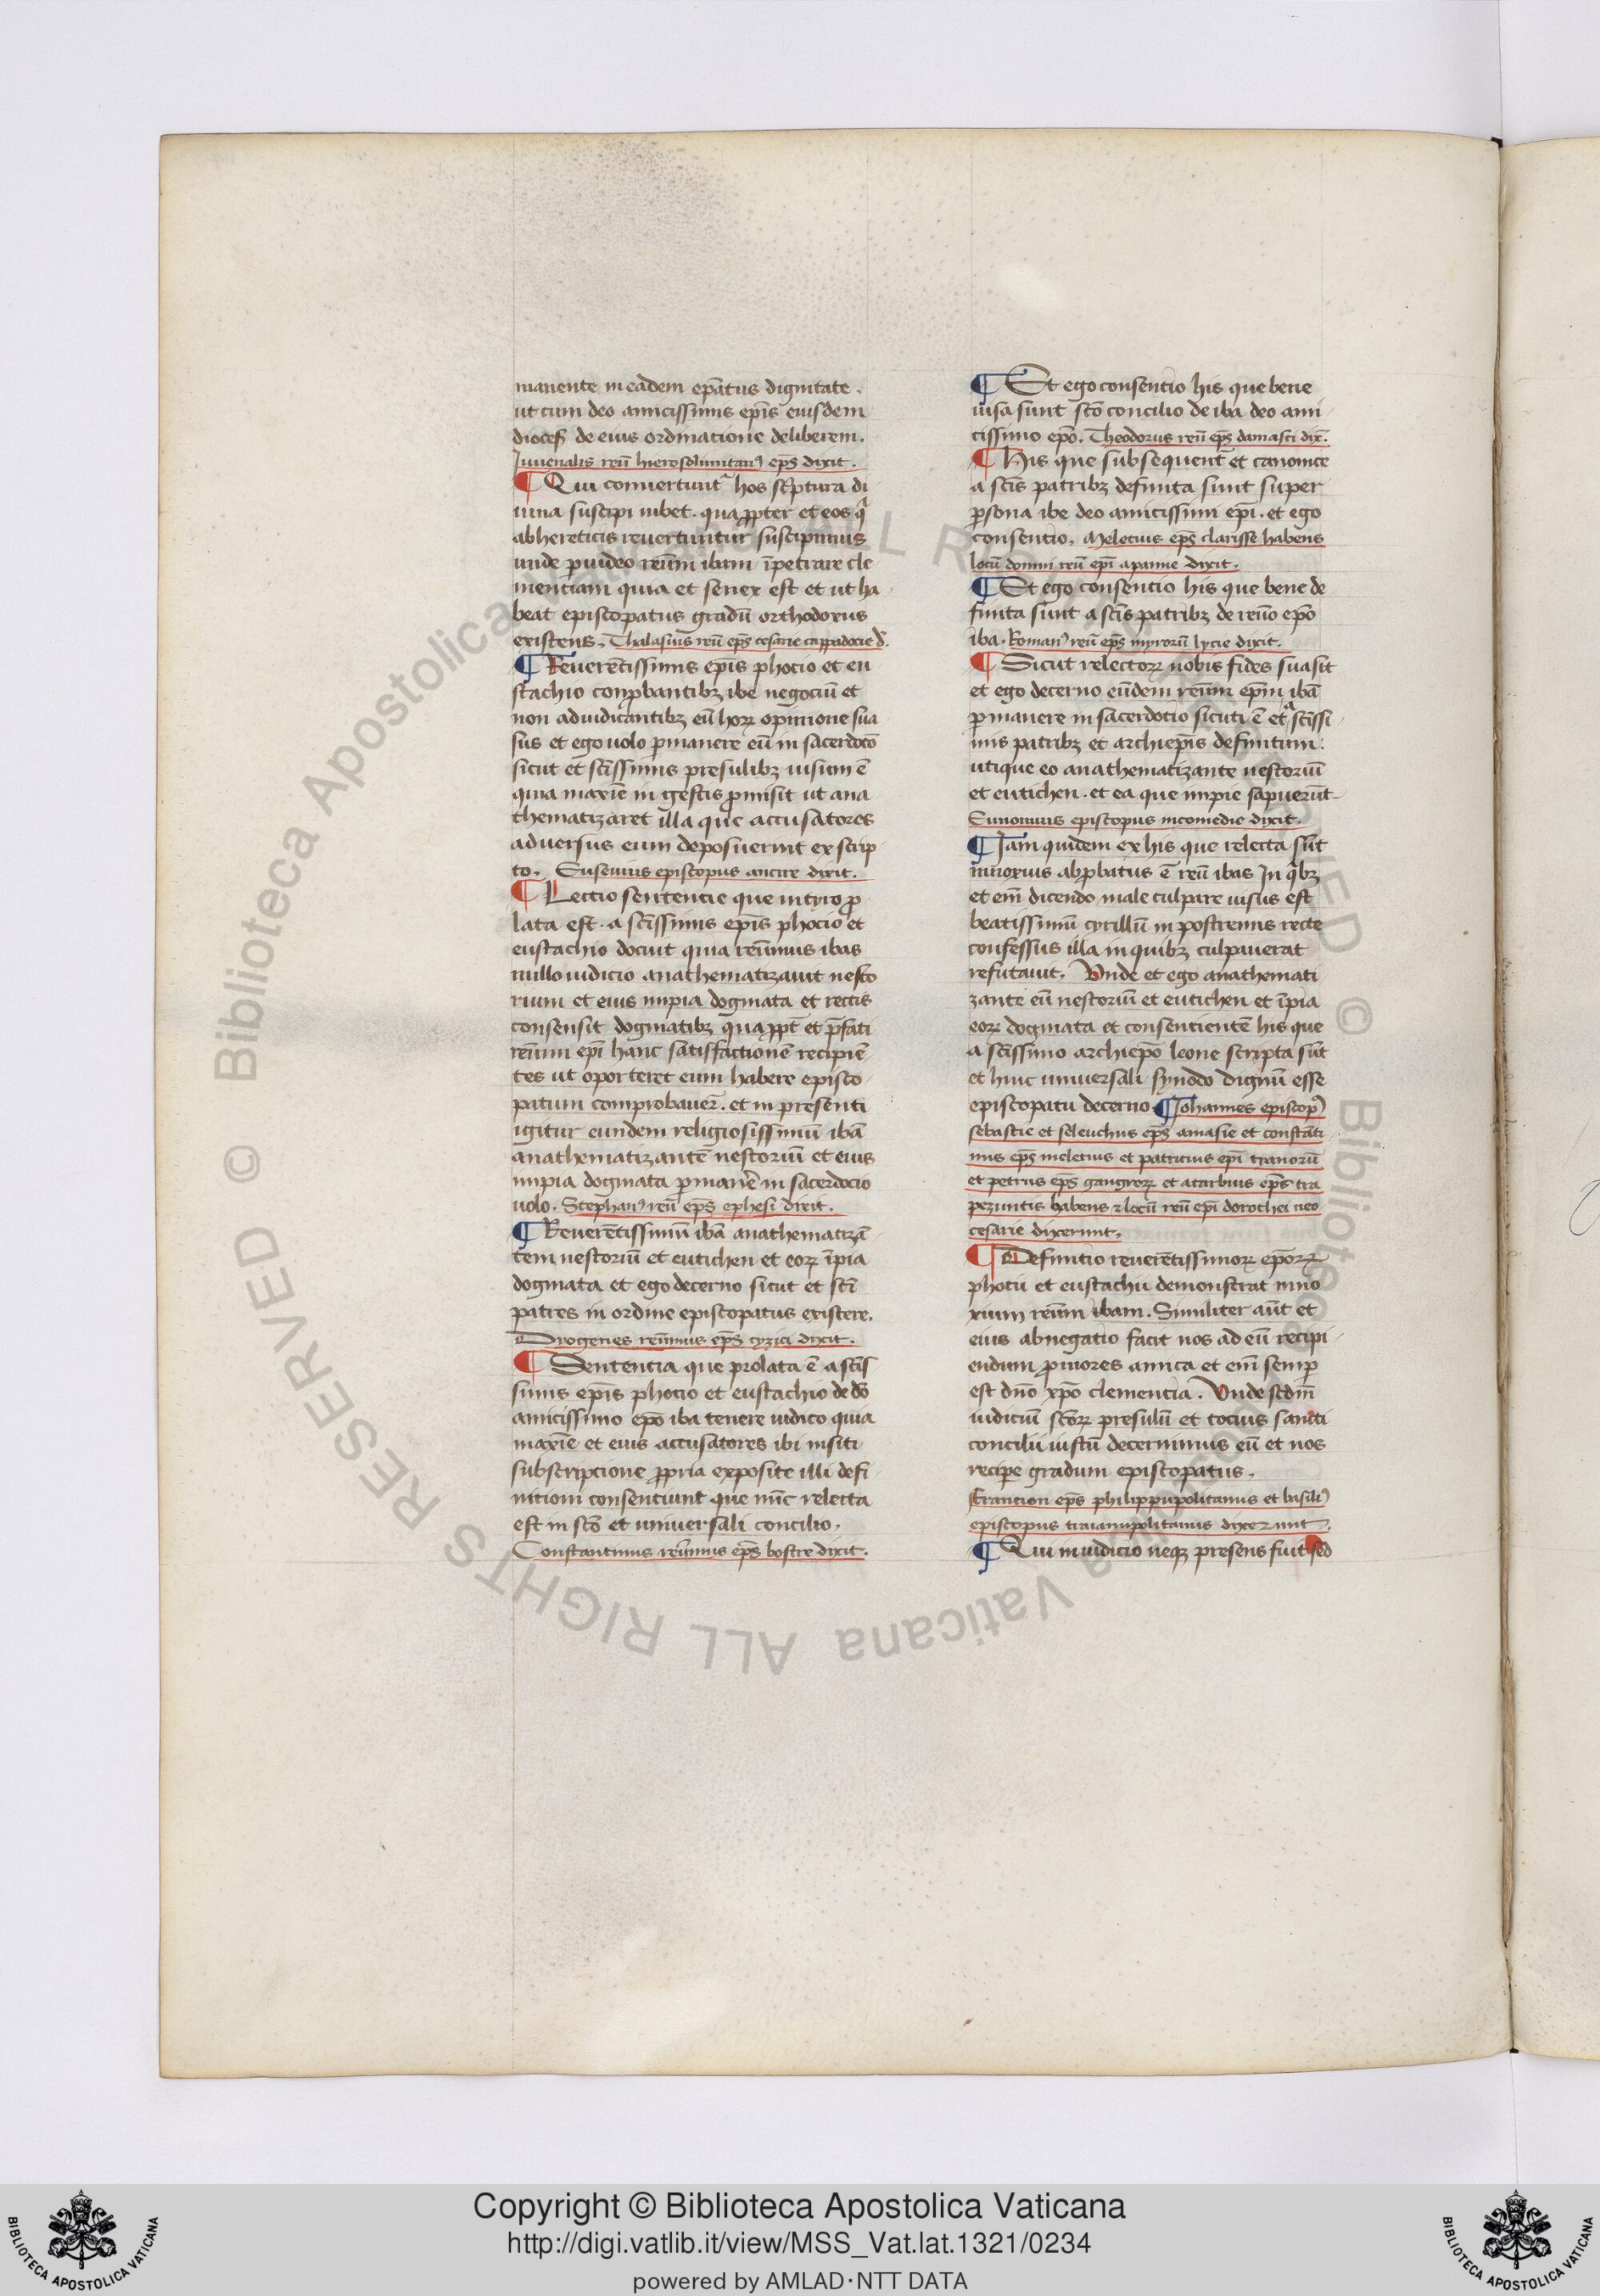 manente in eadem ep̄atus dignitate .
ut cum deo amicissimis ep̄is eiusdem
dioces̄ de eius ordinatione deliberem .
Iuuenalis reu̅ hierosolimitanꝰ ep̄s dixit .
¶ Qui conuertunt᷑ hos sc̄ptura di
uina suscipi iubet . quaꝓpter et eos qͥ
ab hereticis reuertuntur suscipimus
unde ꝓuideo reu̅m ibam īpetrare cle
mentiam quia et senex est et ut ha
beat episcopatus gradū orthodoxus
existens . Thalasius reu̅ ep̄s cesarie cappadocie d̄ .
¶ Reuerētissimis ep̄is photio et eu
stachio conꝓbantibꝫ ibe negociū et
non adiudicantibꝫ eū hoꝝ opinione sua
sus et ego uolo ꝑmanere eū in sacerdotō
sicut et sc̄issimis presulibꝫ uisum ē
quia maxīe in gestis ꝓmisit ut ana
thematizaret illa que accusatores
aduersus eum deposuerint ex scrip
to . Eusebius episcopus ancire dixit .
¶ Lectio sentencie que in tyro ꝓ
lata est . a sc̄issimis ep̄is photio et
eustachio docuit quia reu̅mus ibas
in illo iudicio anathematizauit nesto
rium et eius impia dogmata et rectis
consensit dogmatibꝫ quaꝓpt̄ et p̄fati
reu̅mi ep̄i hanc satisfactionē recipiē
tes ut oporteret eum habere episco
patum comprobauer̄ . et in presenti
igitur eundem religiosissimū ibā
anathematizantē nestoriū et eius
impia dogmata ꝑmanēe in sacerdocio
uolo . Stephanꝰ reu̅ ep̄s ephesi dixit .
¶ Reuerētissimū ibā anathematizā
tem nestoriū et eutichen et eoꝝ īpia
dogmata et ego decerno sicut et sc̄i
patres in ordine episcopatus existere .
Dyogenes reu̅mus ep̄s cyzici dixit .
¶ Sententia que prolata ē a sc̄is
simis ep̄is photio et eustachio de dō
amicissimo ep̄o iba tenere iudico quia
maxīe et eius accusatores ibi insiti
subscripcione ꝓpria exposite illi defi
nitioni consenciunt que nūc relecta
est in sc̄o et uniuersali concilio .
Constantinus reu̅mus ep̄s bostre dixit .
¶ Et ego consentio his que bene
uisa sunt sc̄o concilio de iba deo ami
cissimo ep̄o . Theodorus reu̅ ep̄s damasci dix̄ .
¶ His que subsequent᷑ et canonice
a sc̄is patribꝫ definita sunt super
ꝑsona ibe deo amicissimi ep̄i . et ego
consentio . Meletius ep̄s clarisse habens
locū domni reu̅ ep̄i apamie dixit .
¶ Et ego consentio his que bene de
finita sunt a sc̄is patribꝫ de reu̅o ep̄o
iba . Romanꝰ reu̅ ep̄s myrorū lycie dixit .
¶ Sicut relectoꝝ nobis fides suasit
et ego decerno eūdem reu̅m ep̄m ibā
ꝑmanere in sacerdotio sicuti ē et a sc̄issi
mis patribꝫ et archiep̄is definitum :
utique eo anathematizante nestoriū
et eutichen . et ea que impie sapuerūt
Eunomius episcopus nicomedie dixit .
¶ Iam quidem ex his que relecta sūt
innoxius abꝓbatus ē reu̅ ibas In qͥbꝫ
et em̄ dicendo male culpare uisus est
beatissimū cyrillū in postremis recte
confessus illa in quibꝫ culpauerat
refutauit . Vnde et ego anathemati
zante eū nestoriū et eutichen et īpia
eoꝝ dogmata et consentientē his que
a sc̄issimo archiep̄o leone scripta sūt
et huic uniuersali synodo dignū esse
episcopatu decerno . ¶ Iohannes episcopꝰ
sebastie et seleuchus ep̄s amasie et constāti
nus ep̄s meletius et patricius ep̄i tianorū
et petrus ep̄s gangroꝝ et atarbius ep̄s tra
pezuntis habens ⁊ locū reu̅ ep̄i dorothei neo
cesarie dixerunt .
¶ Definitio reuerētissimoꝝ ep̄oꝝ
photii et eustachii demonstrat inno
xium reu̅m ibam . Similiter aūt et
eius abnegatio facit nos ad eū recipi
endum ꝓniores amica et em̄ semꝑ
est dn̄o xp̄o clementia . Vnde scd̄m
iudiciū sc̄oꝝ presulū et tocius sancti
concilii iustū decernimus eū et nos
reciꝑe gradum episcopatus .
Francion ep̄s philippupolitanus et basiliꝰ
episcopus traianupolitanus dixerunt .
¶ Qui in iudicio neqꝫ presens fuit sed
Copyright © Biblioteca Apostolica Vaticana
http://digi.vatlib.it/view/MSS_Vat.lat.1321/0234
powered by AMLAD·NTT DATA
BIBLIOTECA APOSTOLICA VATICANA
BIBLIOTECA APOSTOLICA VATICANA
© Biblioteca Apostolica Vaticana ALL RIGHTS RESERVED
© Biblioteca Apostolica Vaticana ALL RIGHTS RESERVED